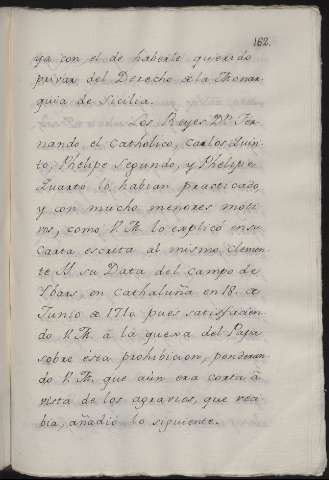 162.
ya con el de haberle querido
privar del Derecho de la Monar
quia de Sicilia.
Los Reyes Dn. Fer-
nando, el catholico, Carlos Quin-
to, Phelipe Segundo, y Phelipe
Quarto lo habian practicado,
y con mucho menores moti
vos, como V. M. lo explicó en su
Carta escrita al mismo Clemen
te XI. su Data del campo de
Ybars, en Cathaluña en 18. de
Junio de 1710. pues satisfacien-
do V. M. â la quexa del Papa
sobre ésta prohibicion, ponderan
do V. M. que aún era corta â
vista de los agravios, que reci
bia, añadió lo siguiente.